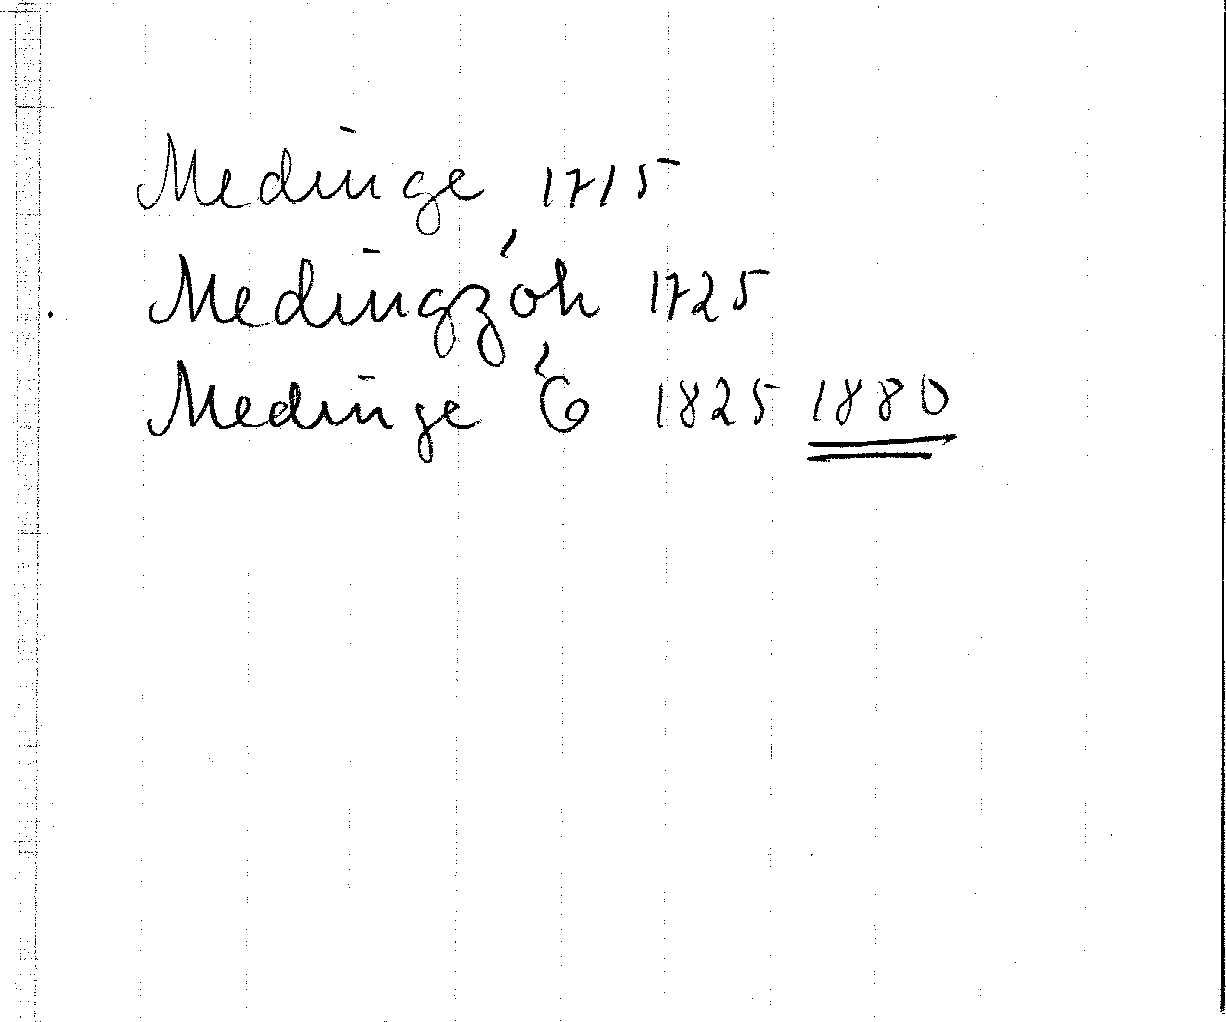 Medinge 1715
Medingzóh 1725
Medinge Ó 1825 1880